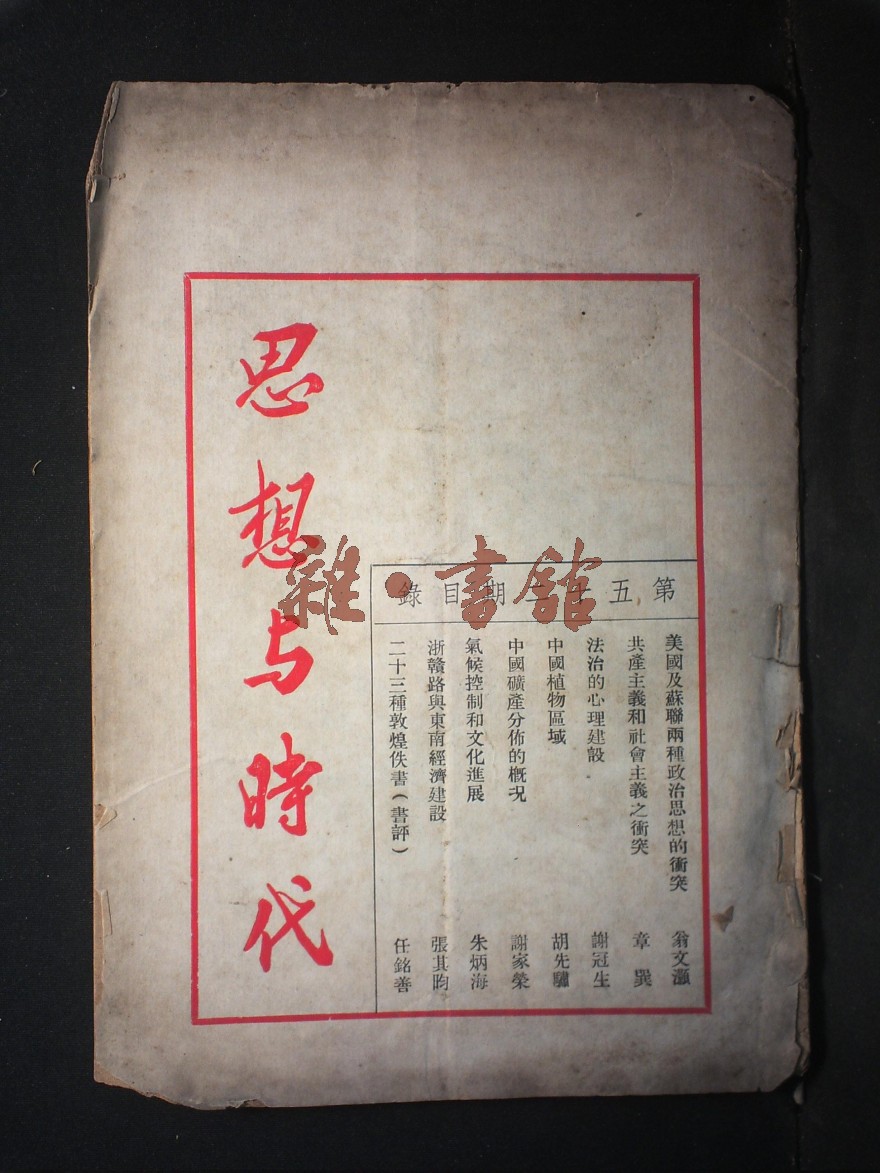 思想与時代
第五十二期目錄
美國及蘇聯兩種政治思想的衝突 翁文灝
共產主義和社會主義之衝突 章巽
法治的心理建設 謝冠生
中國植物區域 胡先驌
中國礦產分佈的概况 謝家榮
氣候控制和文化進展 朱炳海
浙贛路與東南經濟建設 張其昀
二十三種敦煌佚書(書評) 任銘善
雜·書館